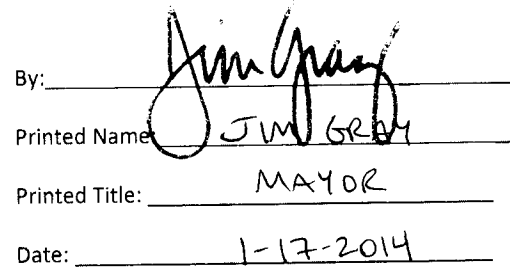 By: Jim Gray
Printed Name: JIM GRAY
Printed Title: MAYOR
Date: 1-17-2014